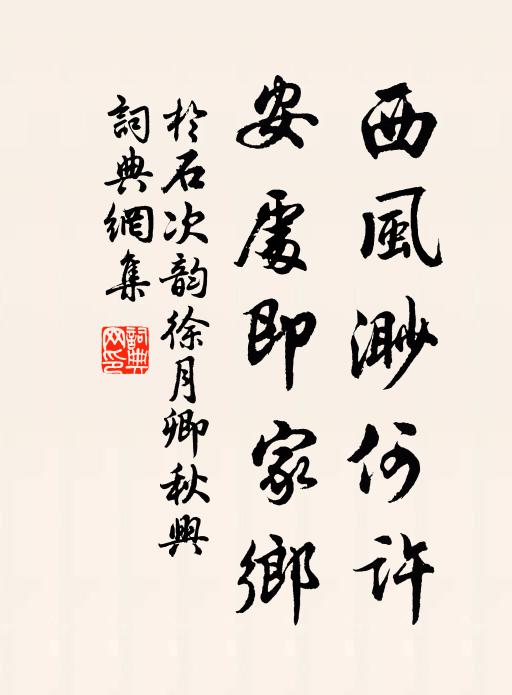 西風渺何許
安處即家鄉
於石次韵徐月卿秋興
詞典網集
詞典網印